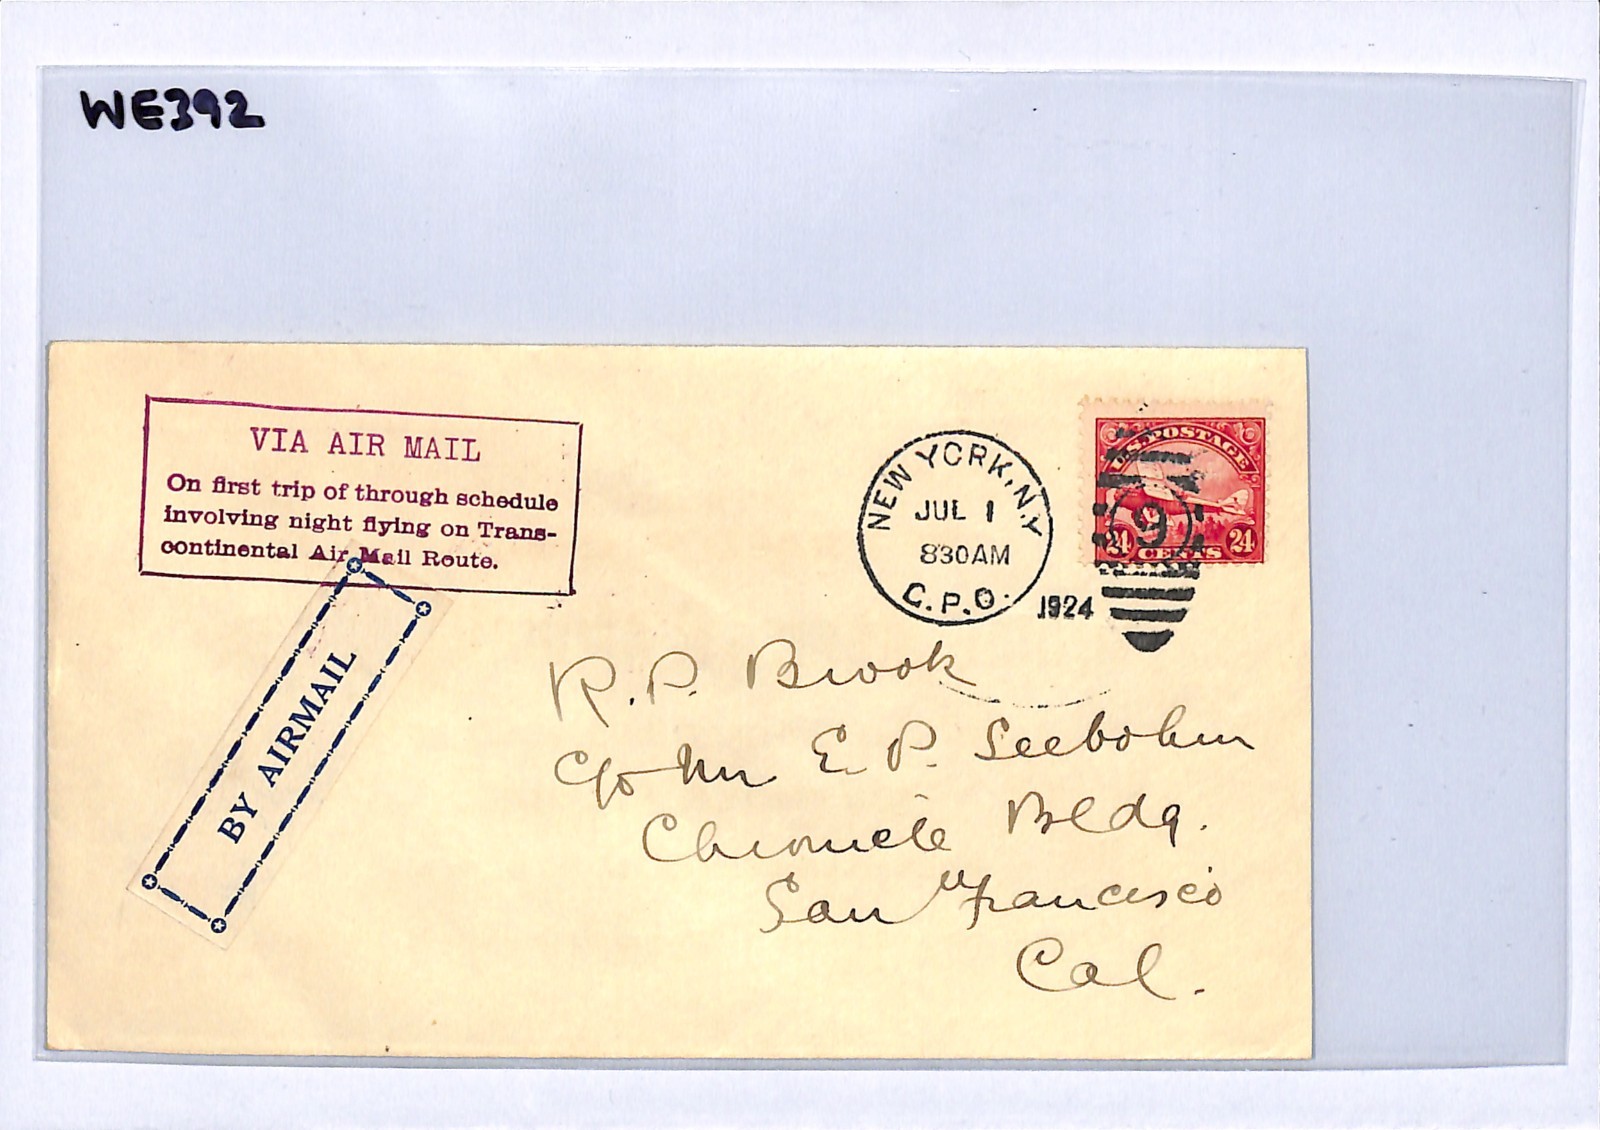 WE392
VIA AIR MAIL
On first trip of through schedule
involving night flying on Trans-
continental Air Mail Route.
BY AIRMAIL
NEW YORK, N.Y
JUL 1
830AM
G.P.O.
1924
U.S. POSTAGE
9
24 CENTS 24
R. P. Brook
c/o Mr E. P. Seebohm
Chronicle Bldg.
San Francisco
Cal.